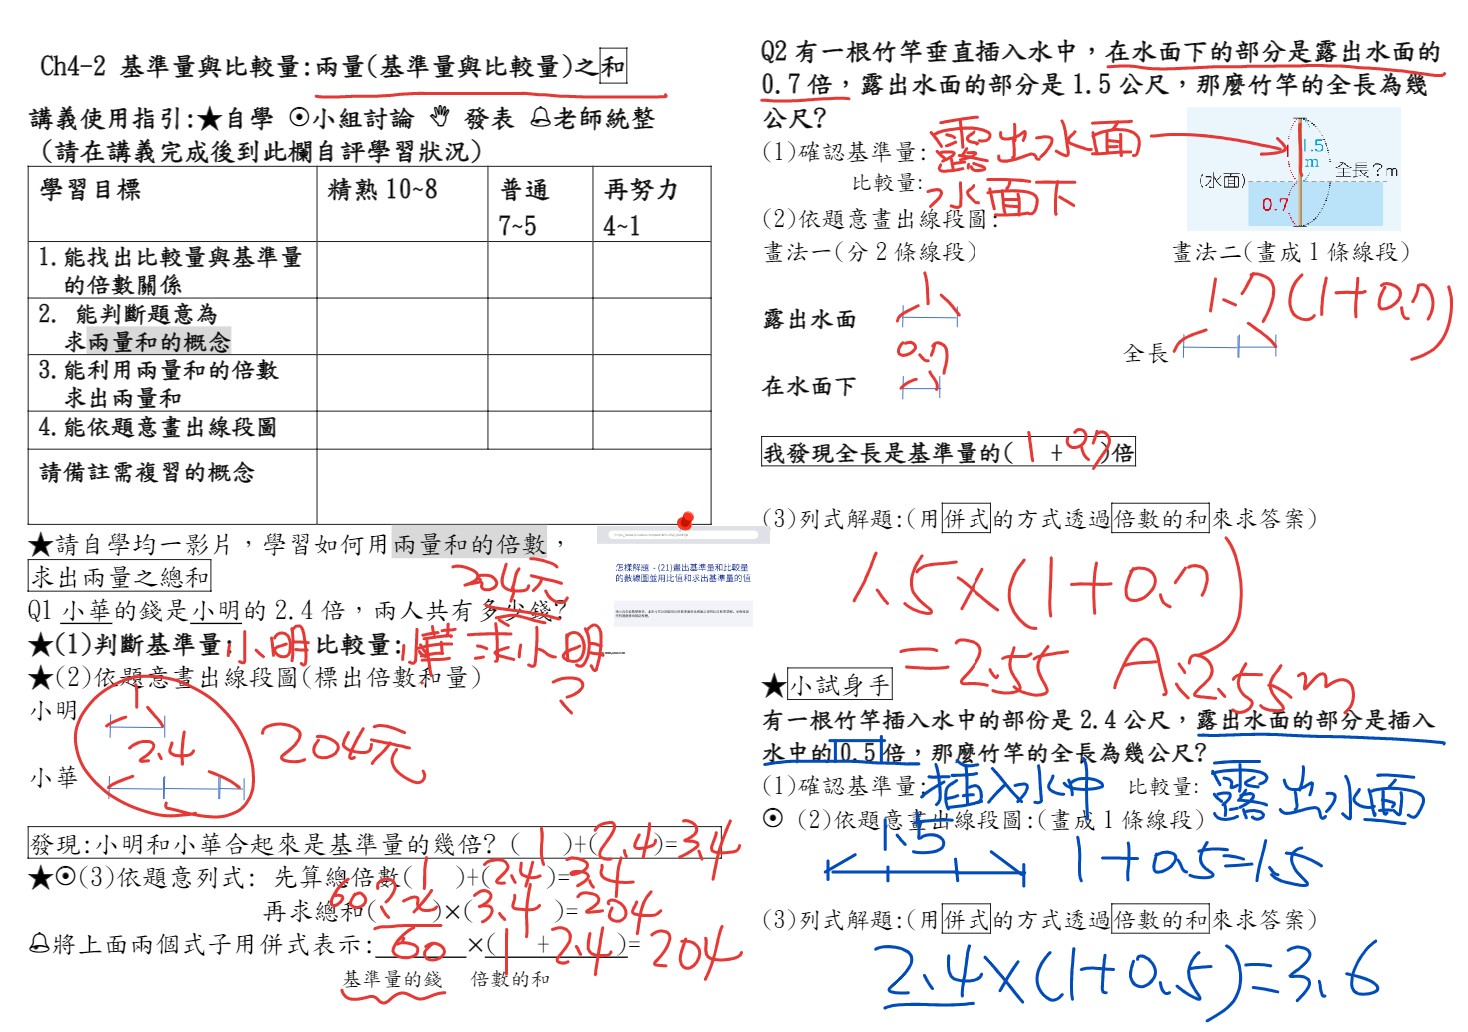 Ch4-2 基準量與比較量:兩量(基準量與比較量)之和
講義使用指引:★自學 ⊙小組討論 發表 老師統整
(請在講義完成後到此欄自評學習狀況)
學習目標 精熟 10~8 普通 7~5 再努力 4~1
1.能找出比較量與基準量的倍數關係
2. 能判斷題意為求兩量和的概念
3.能利用兩量和的倍數求出兩量和
4.能依題意畫出線段圖
請備註需複習的概念
★請自學均一影片，學習如何用兩量和的倍數，
求出兩量之總和
怎樣解題 - (21)畫出基準量和比較量
的數線圖並用比值和求出基準量的值
204元
Q1 小華的錢是小明的 2.4 倍，兩人共有多少錢?
★(1)判斷基準量:小明 比較量:華 求小明?
★(2)依題意畫出線段圖(標出倍數和量)
小明 1
2.4 204元
小華
發現:小明和小華合起來是基準量的幾倍? ( 1 )+(2.4)=3.4
★⊙(3)依題意列式: 先算總倍數( 1 )+(2.4)=3.4
再求總和(60?x)×(3.4)=204
將上面兩個式子用併式表示: 60 ×(1 + 2.4)= 204
基準量的錢 倍數的和
Q2 有一根竹竿垂直插入水中，在水面下的部分是露出水面的
0.7 倍，露出水面的部分是 1.5 公尺，那麼竹竿的全長為幾
公尺?
(1)確認基準量: 露出水面
比較量: 水面下
1.5
m
全長?m
(水面)
0.7
(2)依題意畫出線段圖:
畫法一(分 2 條線段) 畫法二(畫成 1 條線段)
1
露出水面
1.7(1+0.7)
全長
0.7
在水面下
我發現全長是基準量的( 1 + 0.7 )倍
(3)列式解題:(用併式的方式透過倍數的和來求答案)
1.5×(1+0.7)
=2.55 A:2.55m
★小試身手
有一根竹竿插入水中的部份是 2.4 公尺，露出水面的部分是插入
水中的 0.5 倍，那麼竹竿的全長為幾公尺?
(1)確認基準量:插入水中 比較量: 露出水面
⊙ (2)依題意畫出線段圖:(畫成 1 條線段)
1.5 1+0.5=1.5
(3)列式解題:(用併式的方式透過倍數的和來求答案)
2.4×(1+0.5)=3.6